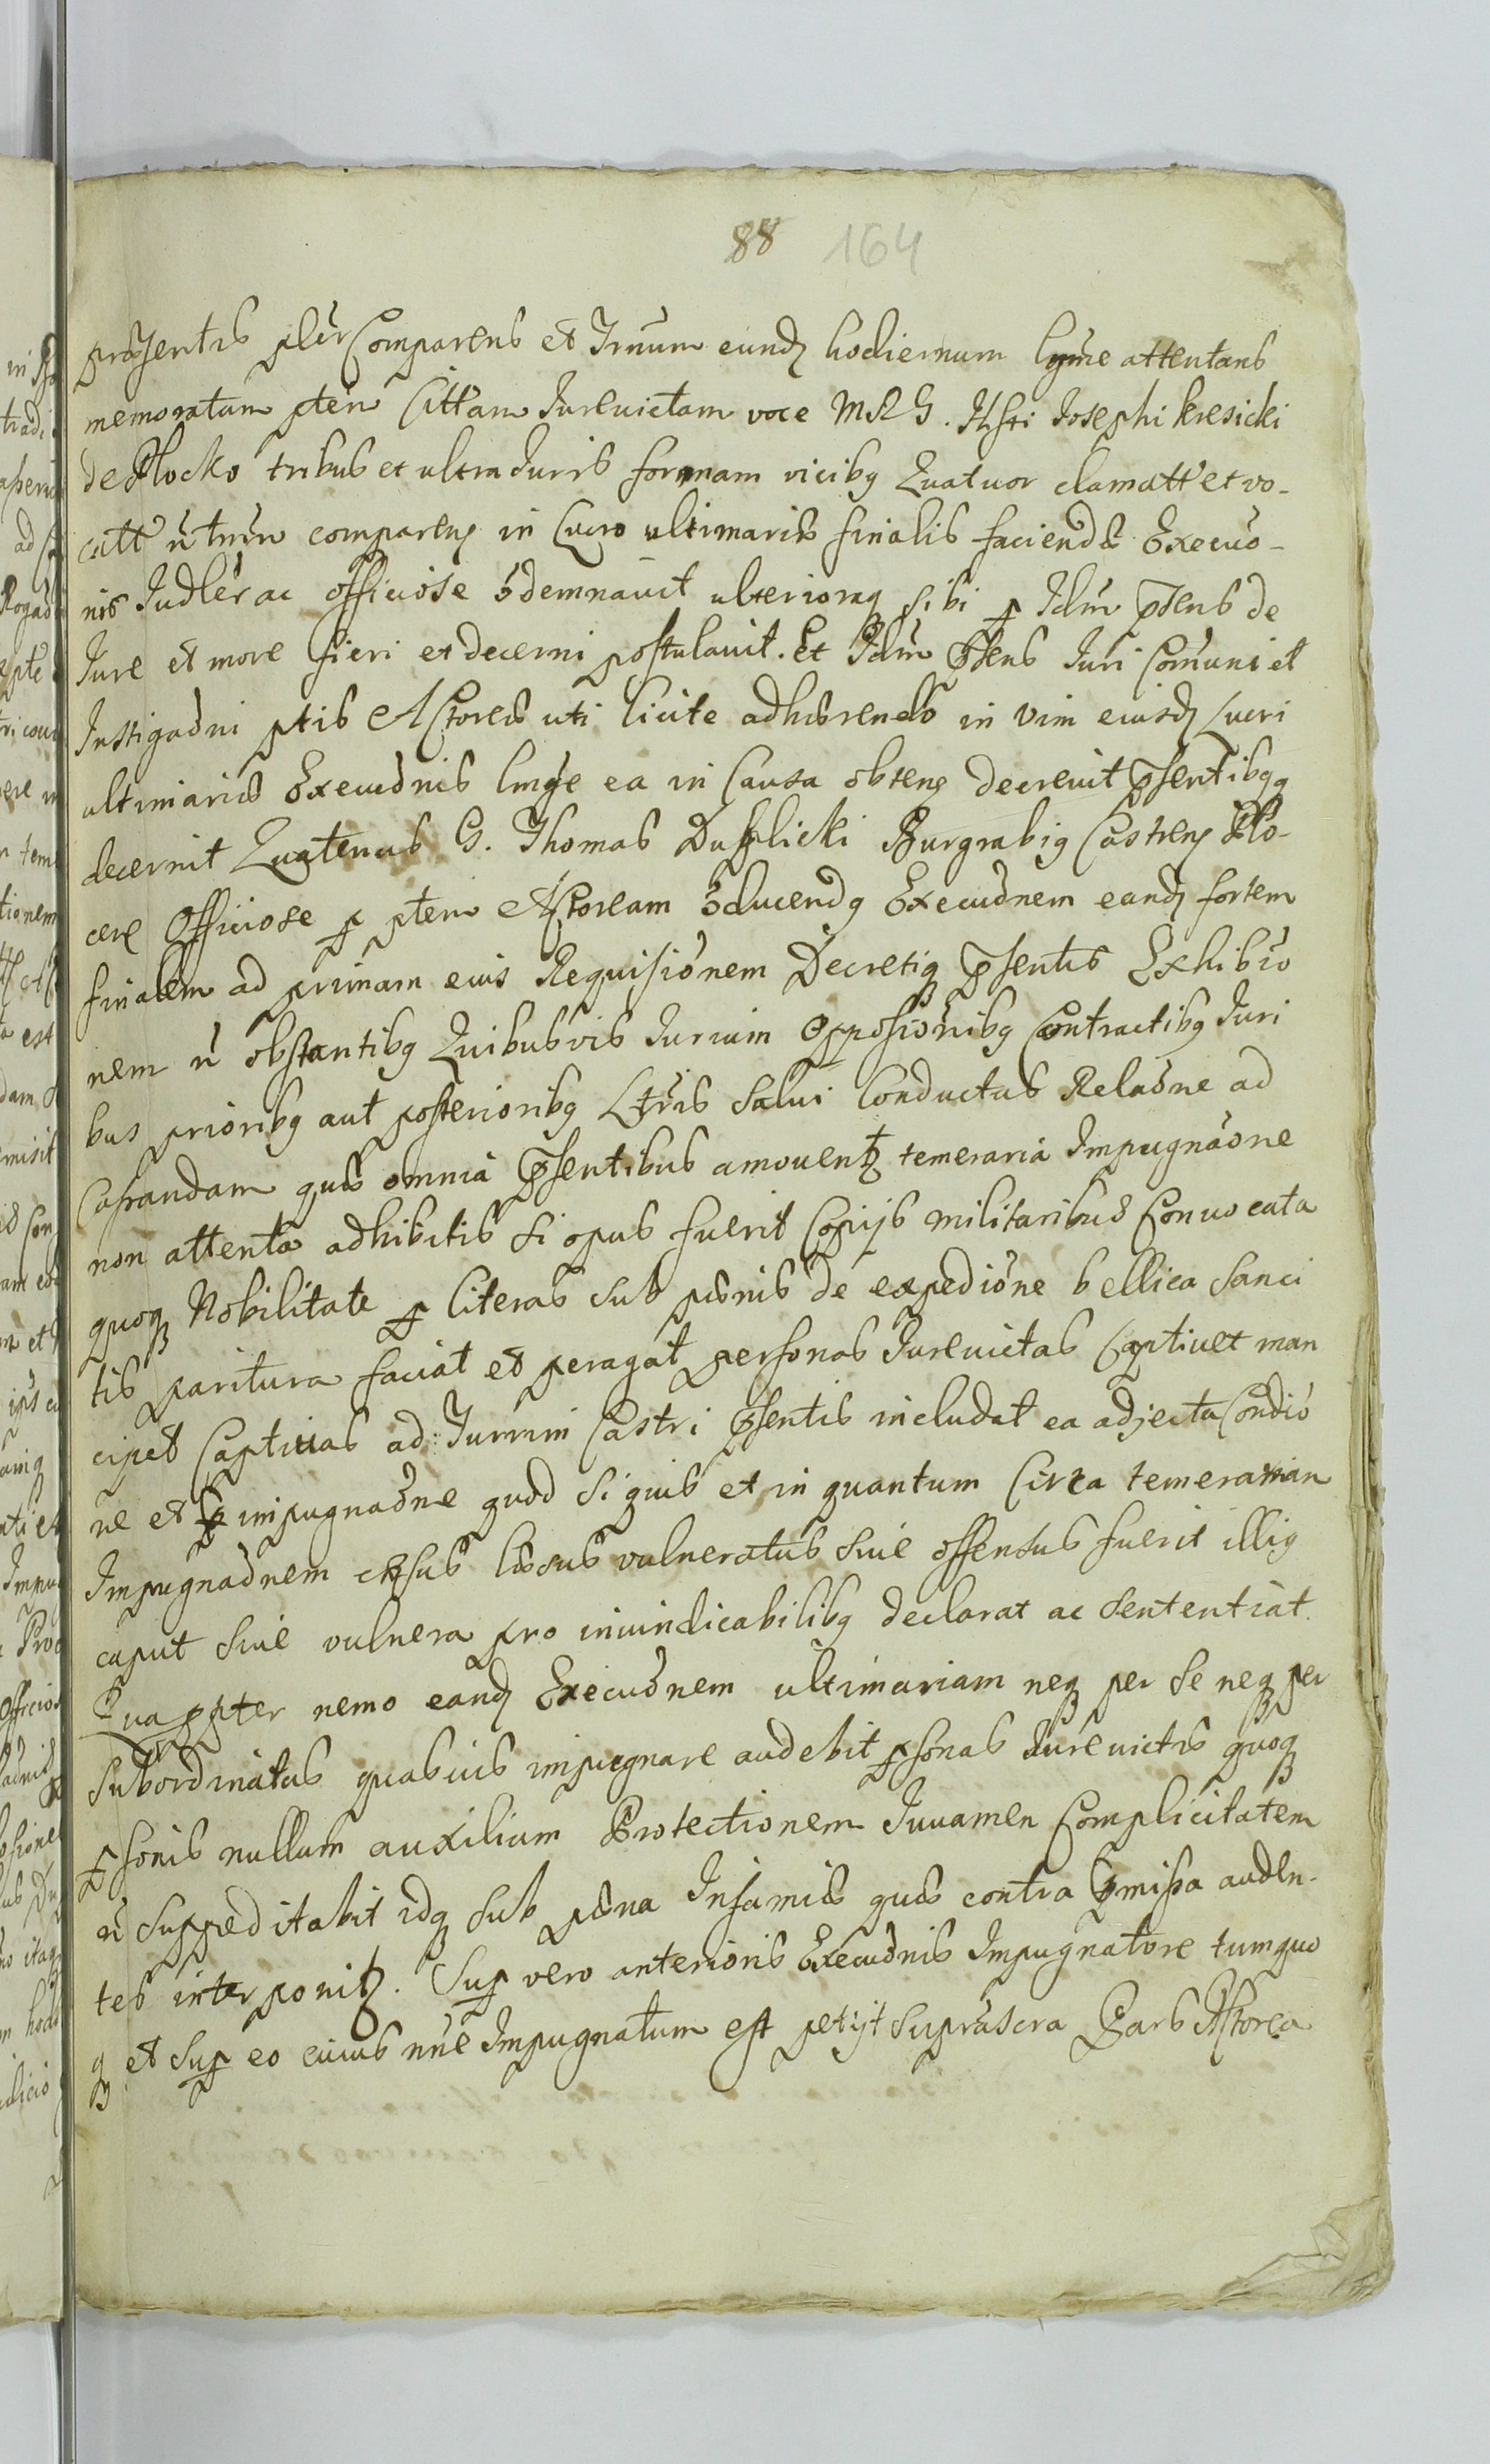 88 164
præsentis plěr Comparens et Trnum eund hodiernum lgme attentans
memoratam ptem Cittam Jurevictam voce MRG. Illsti Josephi Kresicki
de Plocko tribus et ultra Juris formam vicibq Quatuor clamatt et vo-
catt ñ tmen comparens in Lucro ultimariæ finalis faciendæ Execuō-
nis Judlěr ac officiose ɔdemnavit ulteriorāq sibi p Idm Psens de
Jure et more fieri et decerni postulavit. Et Idm Psens Juri Comuni et
Instigaōni ptis Actoreæ uti licite adhærendo in vim eiusd Lucri
ultimariæ Execuōnis lmge ea in Causa obtens decrevit Psentibqq
decernit Quatenus G. Thomas Duplicki Burgrabiq Castrens Plo-
cens Officiose p ptem Actoream ɔducendq Execuōnem eand fortem
finalem ad primam eius Requisiōnem Decretiq Psentis Exhibiō
nem ñ obstantibq Quibusvis Jurium Opposiōnibq Contractibq Juri
bus prioribq aut posterioribq Ltris Salvi Conductus Relaōne ad
Cassandam quæ omnia Psentibus amoventʒ temeraria Impugnaōne
non attenta adhibitis Si opus fuerit Copijs militaribus Convocata
quoq Nobilitate p literas sub pænis de expediōne bellica Sanci
tis paritura faciat et peragat personas Jurevictas Captivet man
cipet Captivas ad Turrim Castri Psentis includat ea adjecta Condiō
ne et p impugnaōne quod Siquis et in quantum Circa temerariam
Impugnaōnem cæsus læsus vulneratus Sive offensus fuerit illiq
caput Sive vulnera pro inuindicabilibq declarat ac Sententiat.
Quappter nemo eand Execuōnem ultimariam neq per Se neq per
Subordinatas quasuis impugnare audebit psonas Jurevictis quoq
psonis nullum auxilium Protectionem Juvamen Complicitatem
ñ suppeditabit idq sub pæna Infamiæ quæ contra Pmissa auden-
tes interponitʒ. Sup vero anterioris Execuōnis Impugnatore tumquo
q et Sup eo cuius nñe Impugnatum est petijt Suprascra Pars Actorea